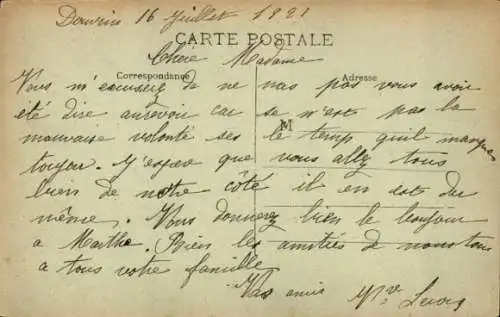 Douvrin 16 Juillet 1921
CARTE POSTALE
Chère Madame
Correspondance
Adresse
M
Vous m'excuserez de ne nas pas vous avoir
été dire aurevoir car se n'est pas la
mauvaise volonté ses le temp qu'il manque
toujou. J'espère que vous allez tous
bien de notre côté il en dot du
même. Vous donnerez bien le bonjour
a Marthe. Bien les amitiés de nous tous
a tous votre famille
Vos amis Mve